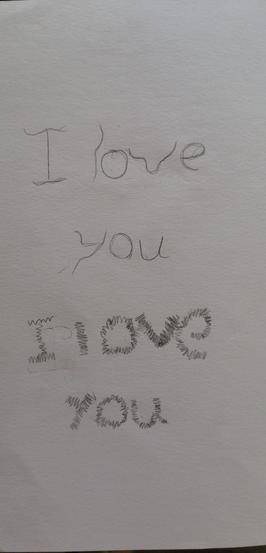 I love
you
I love
You